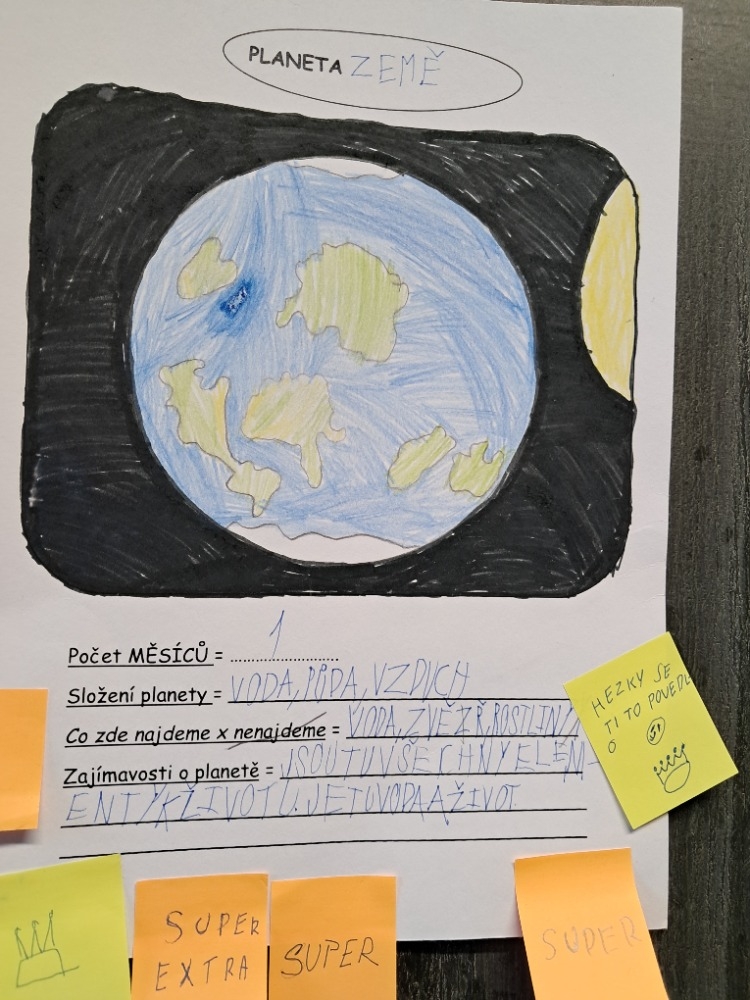 PLANETA ZEMĚ
Počet MĚSÍCŮ = 1
Složení planety = VODA, PŮDA, VZDUCH
Co zde najdeme x nenajdeme = VODA, ZVĚZŘ, ROSTLINY
Zajímavosti o planetě = JSOU TU VŠECHNY ELEM-
ENTY K ŽIVOTU. JE TU VODA A ŽIVOT.
HEZKY SE
TI TO POVEDL
O
SUPER
EXTRA
SUPER
SUPER